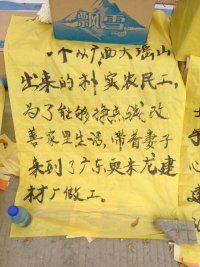 飘雪
一个从广西大瑶山
出来的朴实农民工,
为了能够挣点钱改
善家里生活,带着妻子
来到了广东奥米龙建
材厂做工。